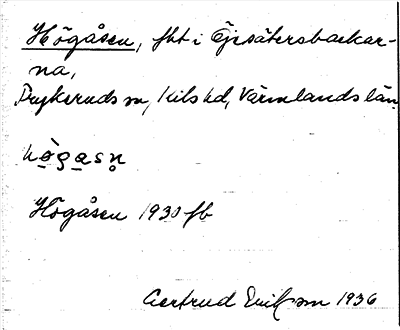 Högåsen, fht i Öjesätersbackar-
na,
Frykeruds sn, Kils hd, Värmlands län
hògasn̥
Högåsen 1930 fb
Gertrud Eriksson 1936